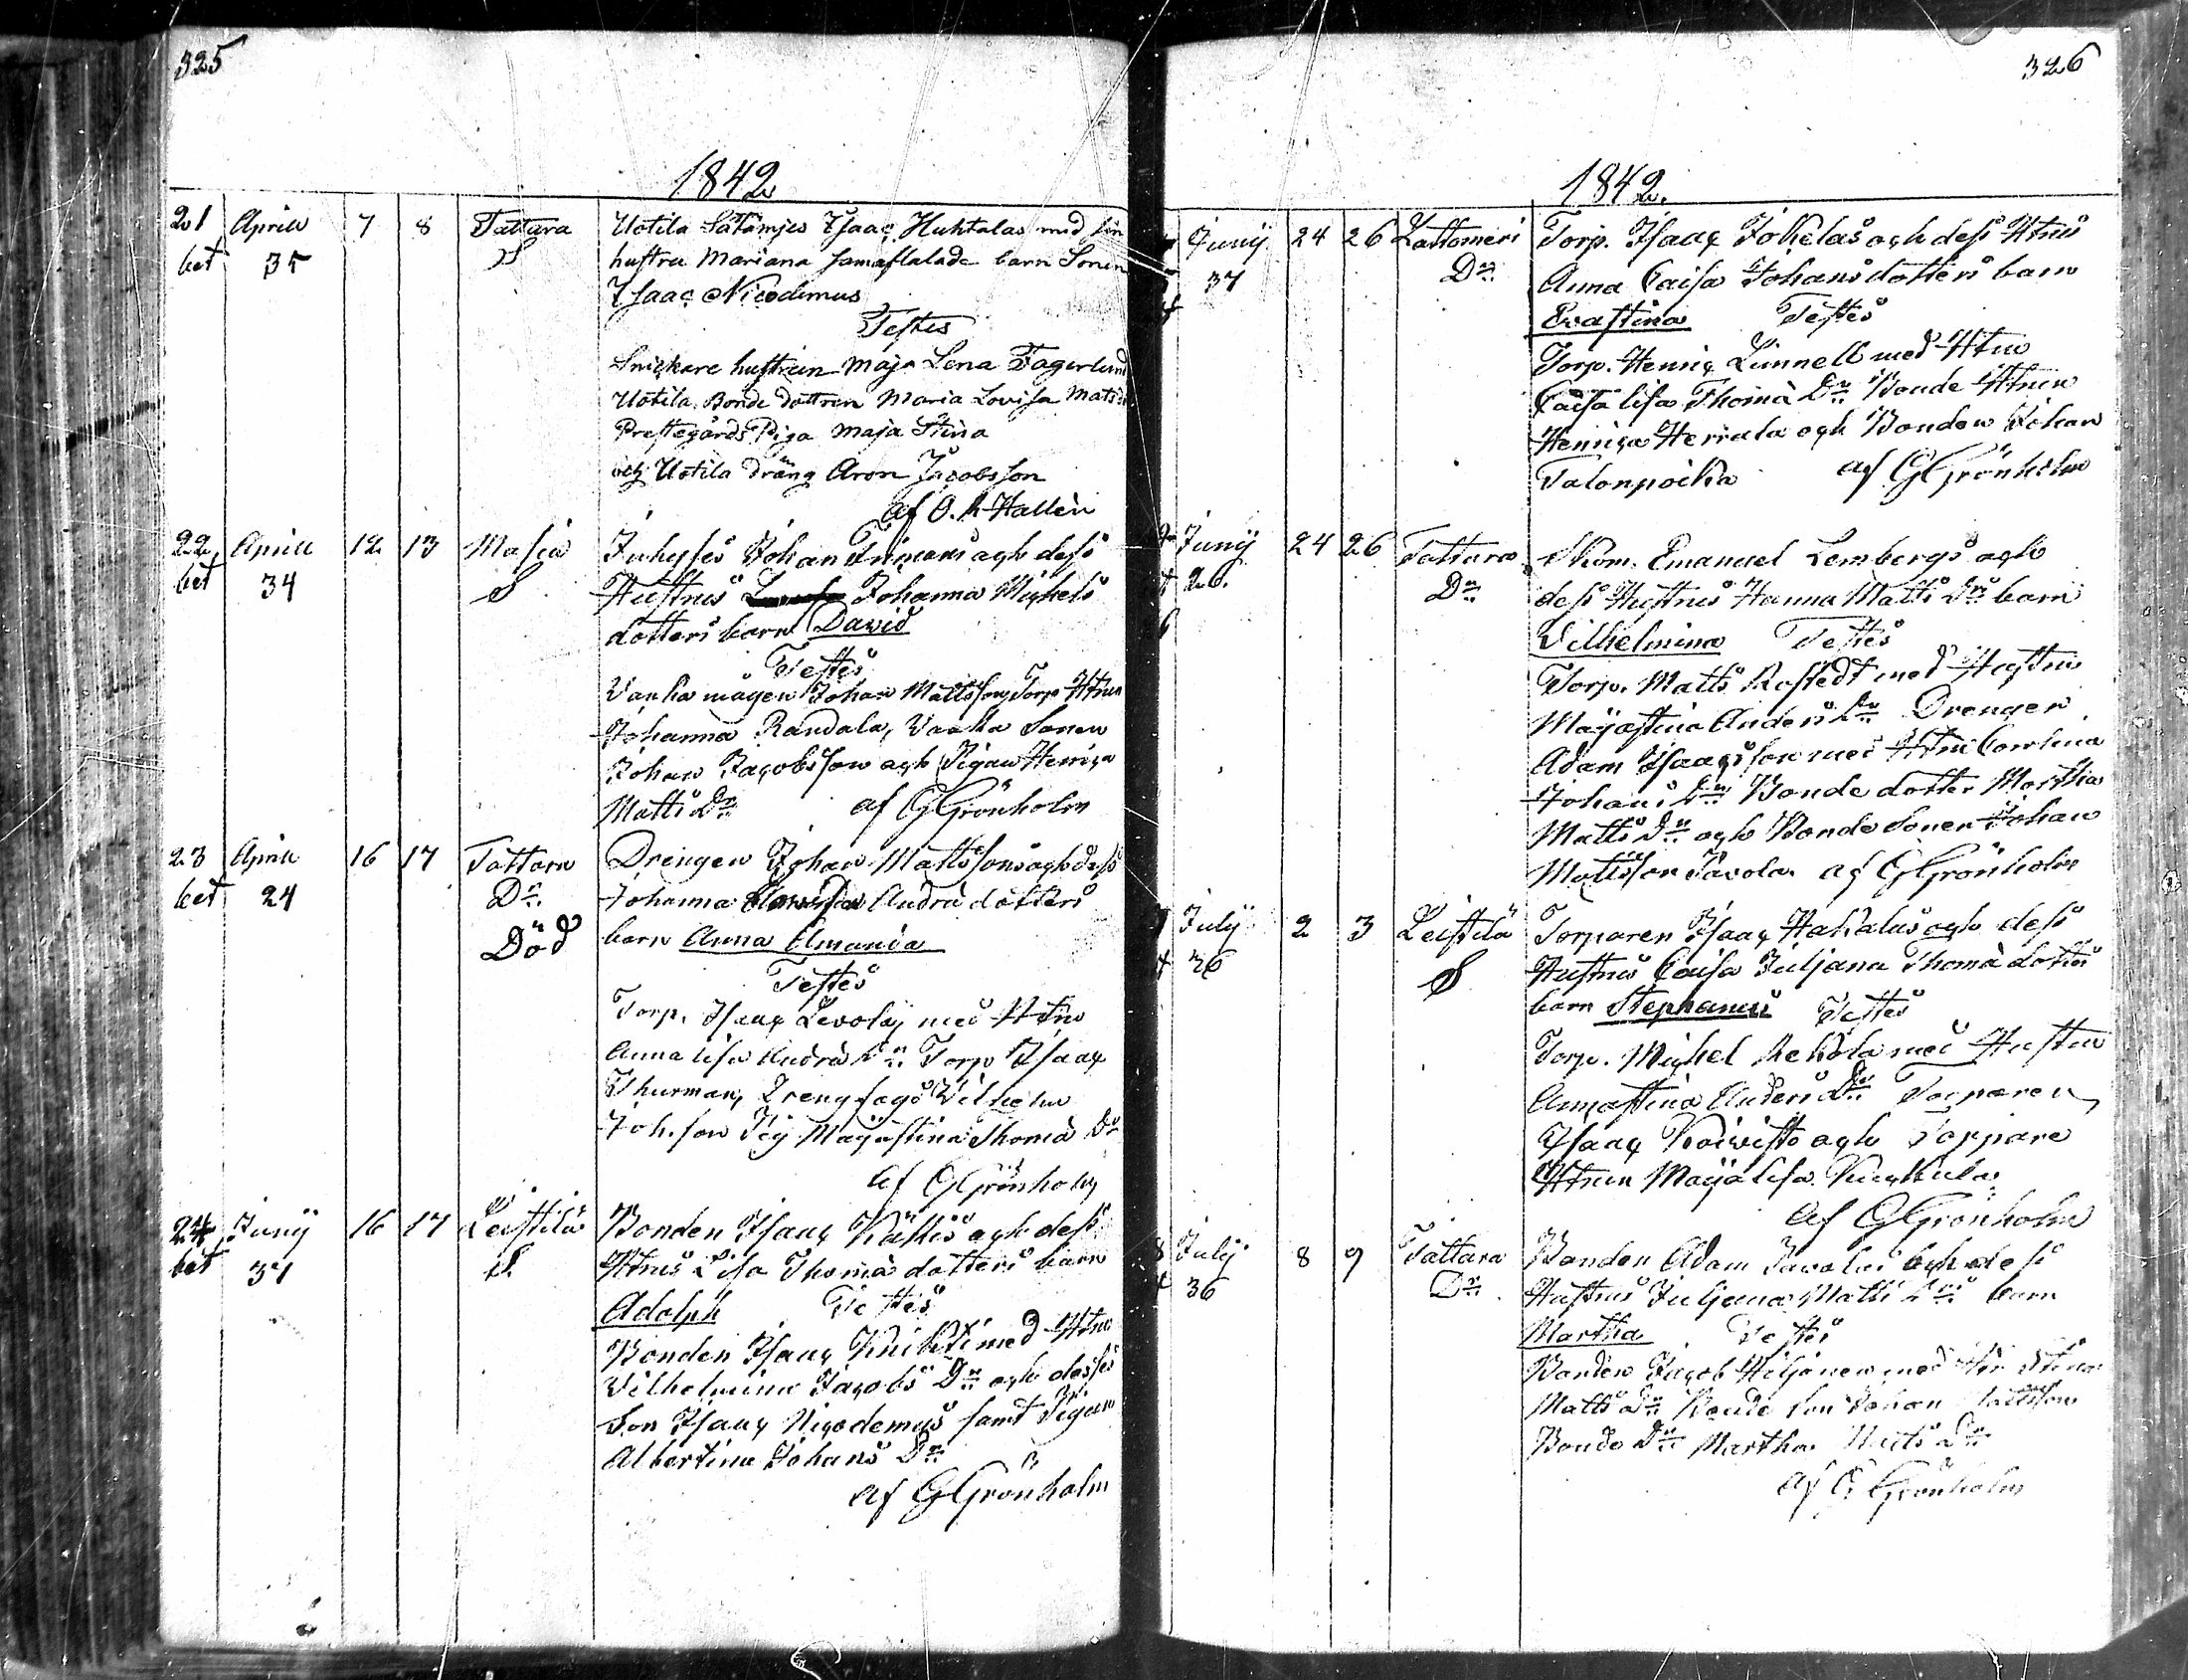 325
1842
21 Aprill 7 8 Tattara Uotila Sätämjes Isaac Huhtalas med sin
bet 35 S hustru Mariana samaflalade barn Sonen
Isaac Nicodemus
Testes
Snickare hustrun Maja Lena Fagerlund
Uotila Bonde dottren Maria Lovisa Mats
Prestegårds Piga Maja Stina
och Uotila dräng Aron Jacobsson
af O. R Hallèn
22 Aprill 12 13 Masia Johan agh dess
bet 34 S Hustrus Johanna Michels
dotters barn David
Testes
Vanha mågen Johan Mattsson, Torp Htrun
Johanna Randala, Vanha Sonen
Johan Jacobsson agh Pigan Henrica
Matts Dr af G Grönholm
23 Aprill 16 17 Tattara Drengen Johan Mattssons agh dess
bet 24 Dr. Johanna Andrà dotters
Död barn Anna Amanda
Testes
Torp. Isaac Levolaj med Htru
Anna Lisa Andrà Dr Torp Isaac
Thurman, Drengfogd Vilhelm
Joh.son Pig Majastina Thomà Dr
af G Grönholm
24 Junij 16 17 Leistilä Bonden Isaac Kättis agh dess
bet 37 S. Htrus Lisa Thomà dotters barn
Adolph Testes
Bonden Isaac Knihti med Htru
Vilhelmina Jacobs Dr agh desses
Son Isaac Nicodemus samt Pigan
Albertina Johans Dr
af G Grönholm
326
1842.
Junij 24 26 Lattomeri Torp. Isaac Jokelas agh dess Htrus
37 Dr Anna Caisa Johansdotters barn
Evastina Testes
Torp. Henric Linnell med Htru
Caisa Lisa Thomà Dr Bonde Htrun
Henrica Herrala agh Bonden Johan
Talonpoika af G Grönholm
Junij 24 26 Tattara Skom. Emanuel Lembergs agh
26. Dr dess Hustrus Hanna Matts Drs barn
Vilhelmina Testes
Torp. Matts Rostedt med Hustru
Majastina Anders Dr Drengen
Adam Isaacsson med Htru Carolina
Johans Dr Bonde dotter Martha
Matts Dr agh Bonde Sonen Johan
Mattsson Javola af G Grönholm
July 2 3 Leistilä Torparen Isaac Hakalas agh dess
26 S Hustrus Caisa Juljana Thomà dotters
barn Stephanus Testes
Torp. Michel Rekola med Hustru
Annastina Anders Dr Torparen
Isaac Koivisto agh Torpare
Htrun Maja Lisa
af G Grönholm
8 July 8 9 Tattara Bonden Adam Javolas agh dess
36 Dr. Hustrus Juljana Matts Drs barn
Martha Testes
Bonden Jacob Hiljanen med Htr Stina
Matts Dr Bonde Son Johan Mattsson
Bonde Dr Martha Matts Dr
af G Grönholm